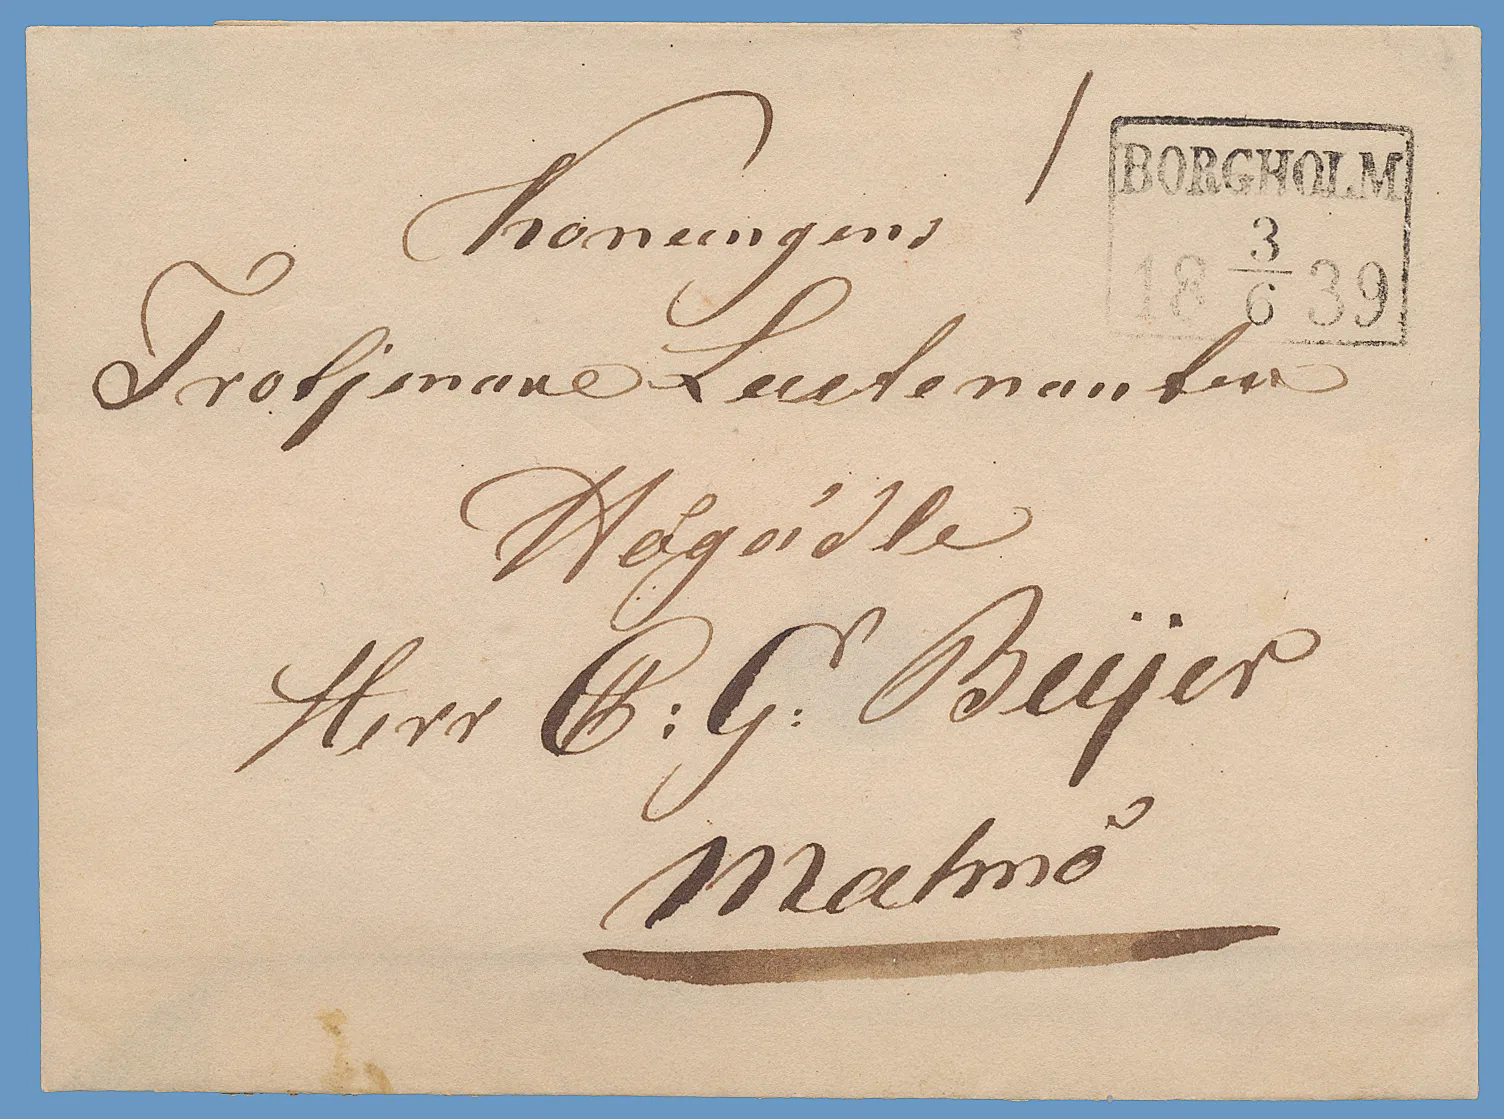 BORGHOLM
3
18 39
6
Konungens
Trotjenare Leutenanten
Högädle
Herr C: G: Beijer
Malmö